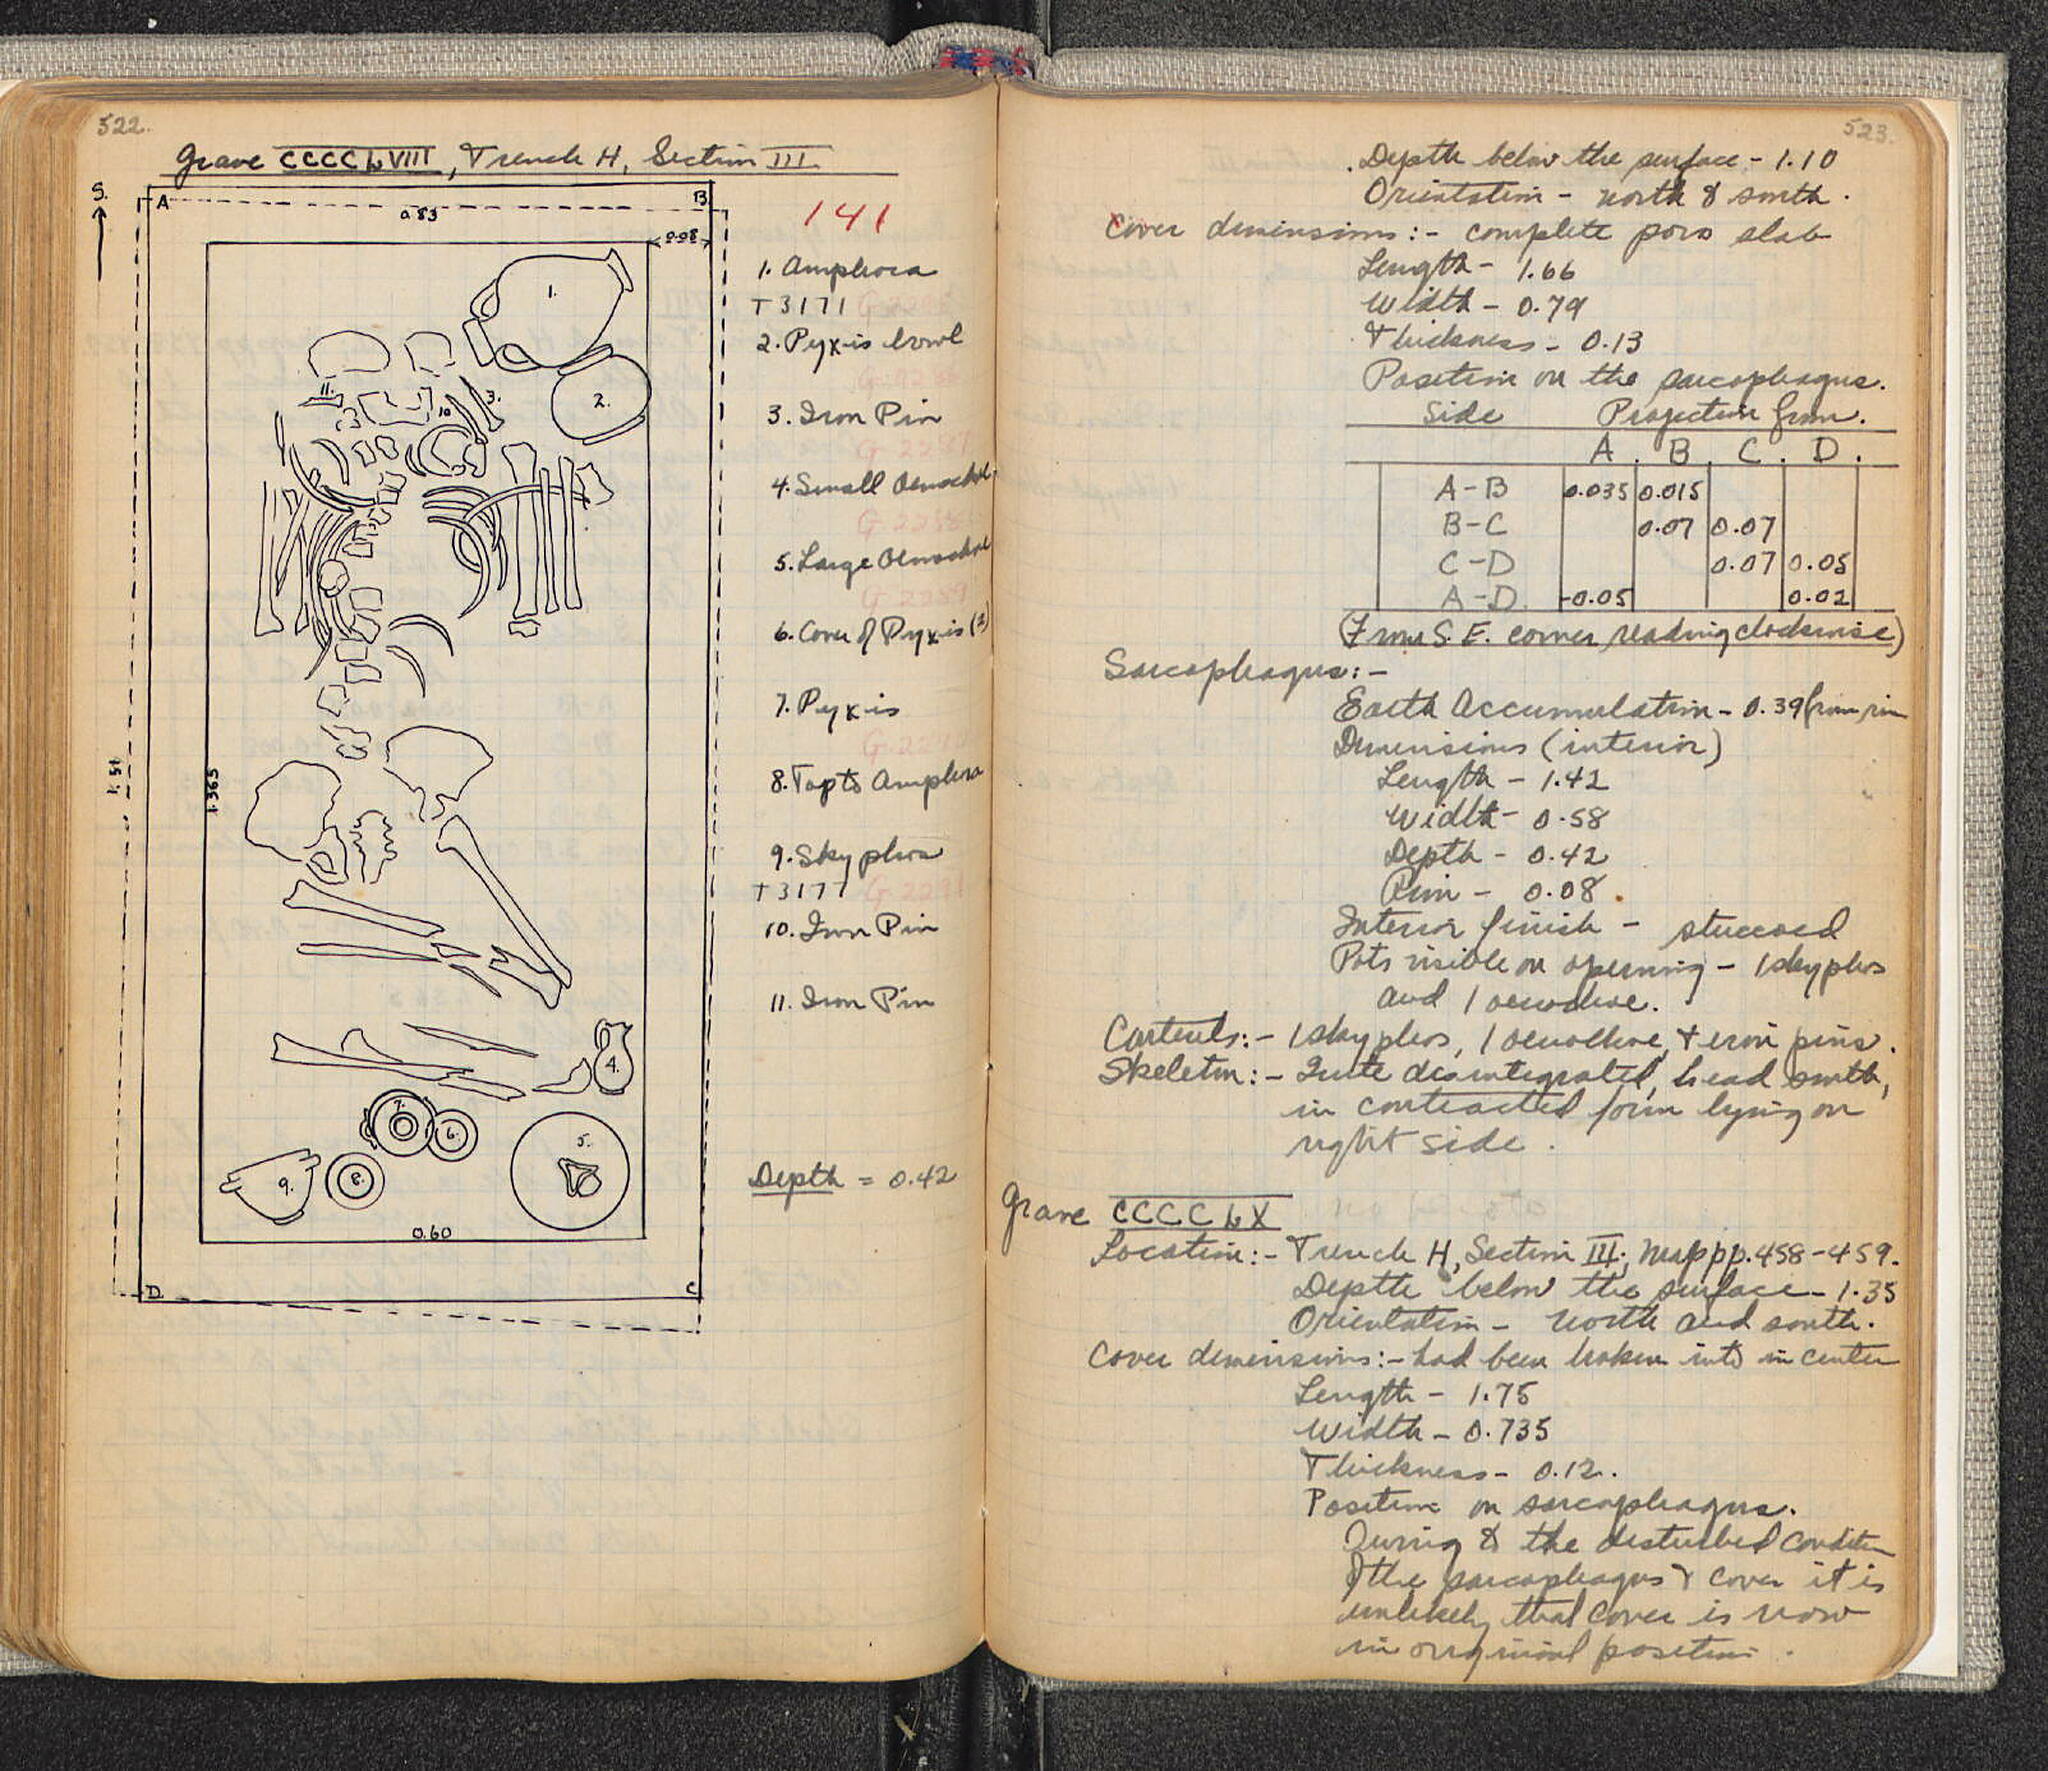 522.
Grave CCCCLVIII, Trench H, Section III
S.
A
B
0.83
0.08
141
1. Amphora
T 3171
2. Pyxis bowl
G 2286
3. Iron Pin
G 2287
4. Small Oenochoe
G 2288
5. Large Oenochoe
G 2289
6. Cover of Pyxis (?)
7. Pyxis
8. Top to Amphora
9. Skyphos
T 3177 G 2291
10. Iron Pin
11. Iron Pin
Depth = 0.42
1.
2.
3.
10
11.
1.365
4.
7.
6.
5.
9.
8.
0.60
D
C
523.
Depth below the surface - 1.10
Orientation - north & south.
Cover dimensions:- complete poros slab
Length - 1.66
Width - 0.79
Thickness - 0.13
Position on the sarcophagus.
Side Projection from.
A. B. C. D.
A-B 0.035 0.015
B-C 0.07 0.07
C-D 0.07 0.05
A-D. -0.05 0.02
(From S.E. corner reading clockwise)
Sarcophagus:-
Earth Accumulation - 0.39 from rim
Dimensions (interior)
Length - 1.42
Width - 0.58
Depth - 0.42
Rim - 0.08.
Interior finish - stuccoed
Pots visible on opening - 1 skyphos
and 1 oenochoe.
Contents:- 1 skyphos, 1 oenochoe, + iron pins.
Skeleton:- Quite disintegrated, head south,
in contracted form lying on
right side.
Grave CCCCLX
Location:- Trench H, Section III, map pp. 458-459.
Depth below the surface - 1.35
Orientation - north and south.
Cover dimensions:- had been broken into in center
Length - 1.75
Width - 0.735
Thickness - 0.12.
Position on sarcophagus.
Owing to the disturbed condition
of the sarcophagus & cover it is
unlikely that cover is now
in original position.